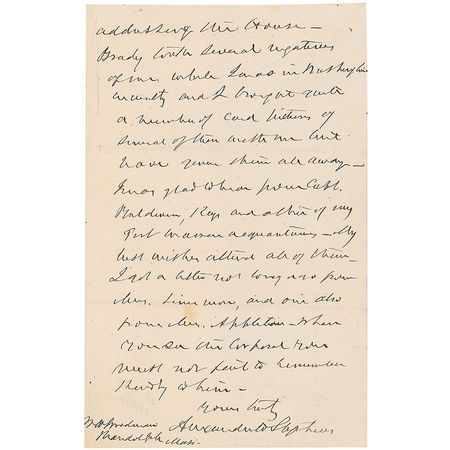 addressing the House —
Brady took several negatives
of me while I was in Washington
recently and I brought quite
a number of card pictures of
several of them with me but
have given them all away —
I was glad to hear from Capt.
Baldwin, Keys and others of my
Fort Warren acquaintances — My
best wishes attend all of them —
I got a letter not long ago from
Mrs. Simmons, and one also
from Mrs. Appleton — When
you see the Corporal you
must not fail to remember
kindly to him —
Yours truly
Alexander H Stephens
Randolph Mass.